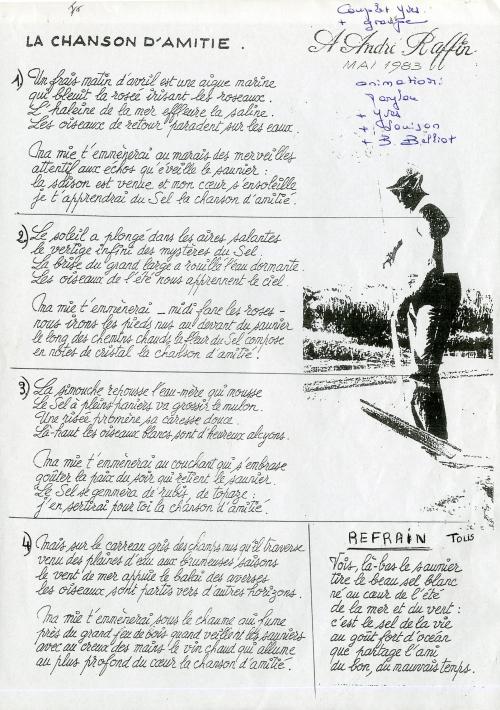 LA CHANSON D'AMITIE.
Couplet Yves
+ groupe
A André Raffin
MAI 1983
animation:
+ Yves
+ Louison
+ B. Belliot
1) Un frais matin d'avril est une aigue marine
qui bleuit la rosée irisant les roseaux.
L'haleine de la mer effleure la saline.
Les oiseaux de retour paradent sur les eaux.
Ma mie t'emmènerai au marais des merveilles
attentif aux échos qu'éveille le saunier :
la saison est venue et mon cœur s'ensoleille
je t'apprendrai du Sel la chanson d'amitié.
2) Le soleil a plongé dans les aires salantes
le vertige infini des mystères du Sel.
La brise du grand large a rouillé l'eau dormante.
Les oiseaux de l'été nous apprennent le ciel.
Ma mie t'emmènerai _ midi fane les roses -
nous irons les pieds nus au devant du saunier
le long des chemins chauds la fleur du Sel compose
en notes de cristal la chanson d'amitié !
3) La simouche repousse l'eau-mère qui mousse
Le Sel à pleins paniers va grossir le mulon.
Une risée promène sa caresse douce.
Là-haut les oiseaux blancs, sont d'heureux alcyons.
Ma mie t'emmènerai au couchant qui s'embrase
goûter la paix du soir qui retient le saunier.
Le Sel se gemmera de rubis, de topaze :
j'en sertirai pour toi la chanson d'amitié.
4) Mais sur le carreau gris des champs nus qu'il traverse
venu des plaines d'eau aux brumeuses saisons
le vent de mer appuie le balai des averses
les oiseaux sont partis vers d'autres horizons.
Ma mie t'emmènerai sous le chaume qui fume
près du grand feu de bois quand veillent les sauniers
avec au creux des mains le vin chaud qui allume
au plus profond du cœur la chanson d'amitié.
REFRAIN Tous
Vois, là-bas le saunier
tire le beau sel blanc
né au cœur de l'été
de la mer et du vent :
c'est le sel de la vie
au goût fort d'océan
que partage l'ami
du bon, du mauvais temps.